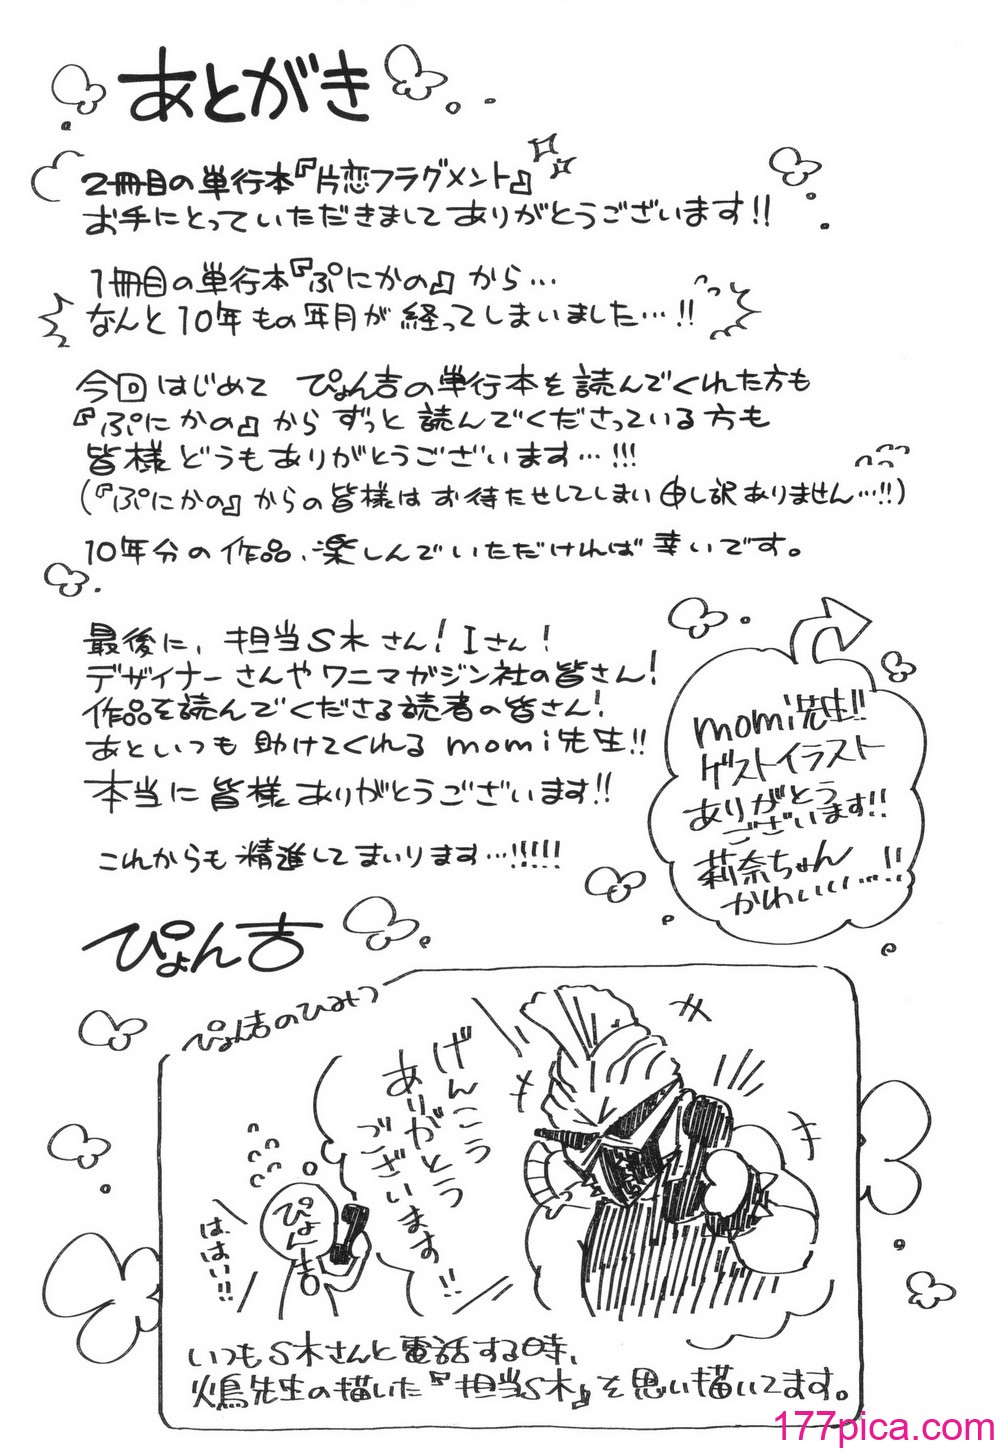 あとがき
2冊目の単行本『片恋フラグメント』
お手にとっていただきましてありがとうございます!!
1冊目の単行本『ぷにかの』から…
なんと10年もの年月が経ってしまいました…!!
今回はじめて ぴょん吉の単行本を読んでくれた方も
『ぷにかの』からずっと読んでくださっている方も
皆様どうもありがとうございます…!!!
(『ぷにかの』からの皆様はお待たせしてしまい申し訳ありません…!!)
10年分の作品、楽しんでいただければ幸いです。
最後に、担当S木さん!Iさん!
デザイナーさんやワニマガジン社の皆さん!
作品を読んでくださる読者の皆さん!
あといつも助けてくれるmomi先生!!
本当に皆様ありがとうございます!!
これからも精進してまいります…!!!!!
momi先生!!
ゲストイラスト
ありがとう
ございます!!
莉奈ちゃん
かわいい…!!
ぴょん吉
ぴょん吉のひみつ
げんこう
ありがとう
ございます!!
ぴょん吉
は、はい!!
いつもS木さんと電話する時、
火鳥先生の描いた『担当S木』を思い描いてます。
177pica.com